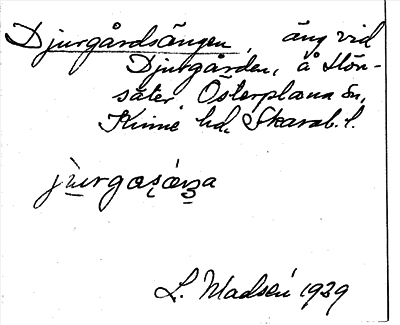 Djurgårdsängen, äng vid
Djurgården, å Hön-
säter, Österplana sn,
Kinne hd, Skarab. l.
L. Madsén 1929